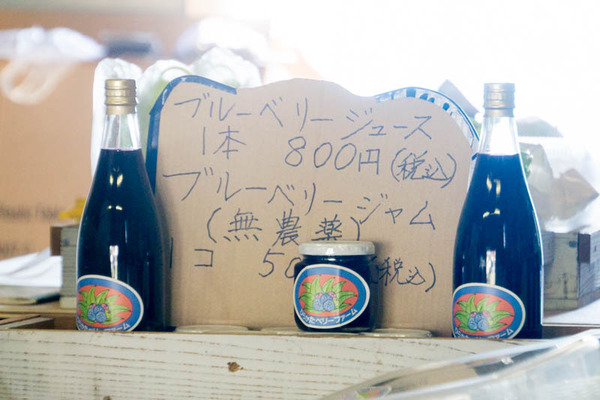 ブルーベリージュース
1本 800円(税込)
ブルーベリージャム
(無農薬)
1コ 50 (税込)
ベリーファーム